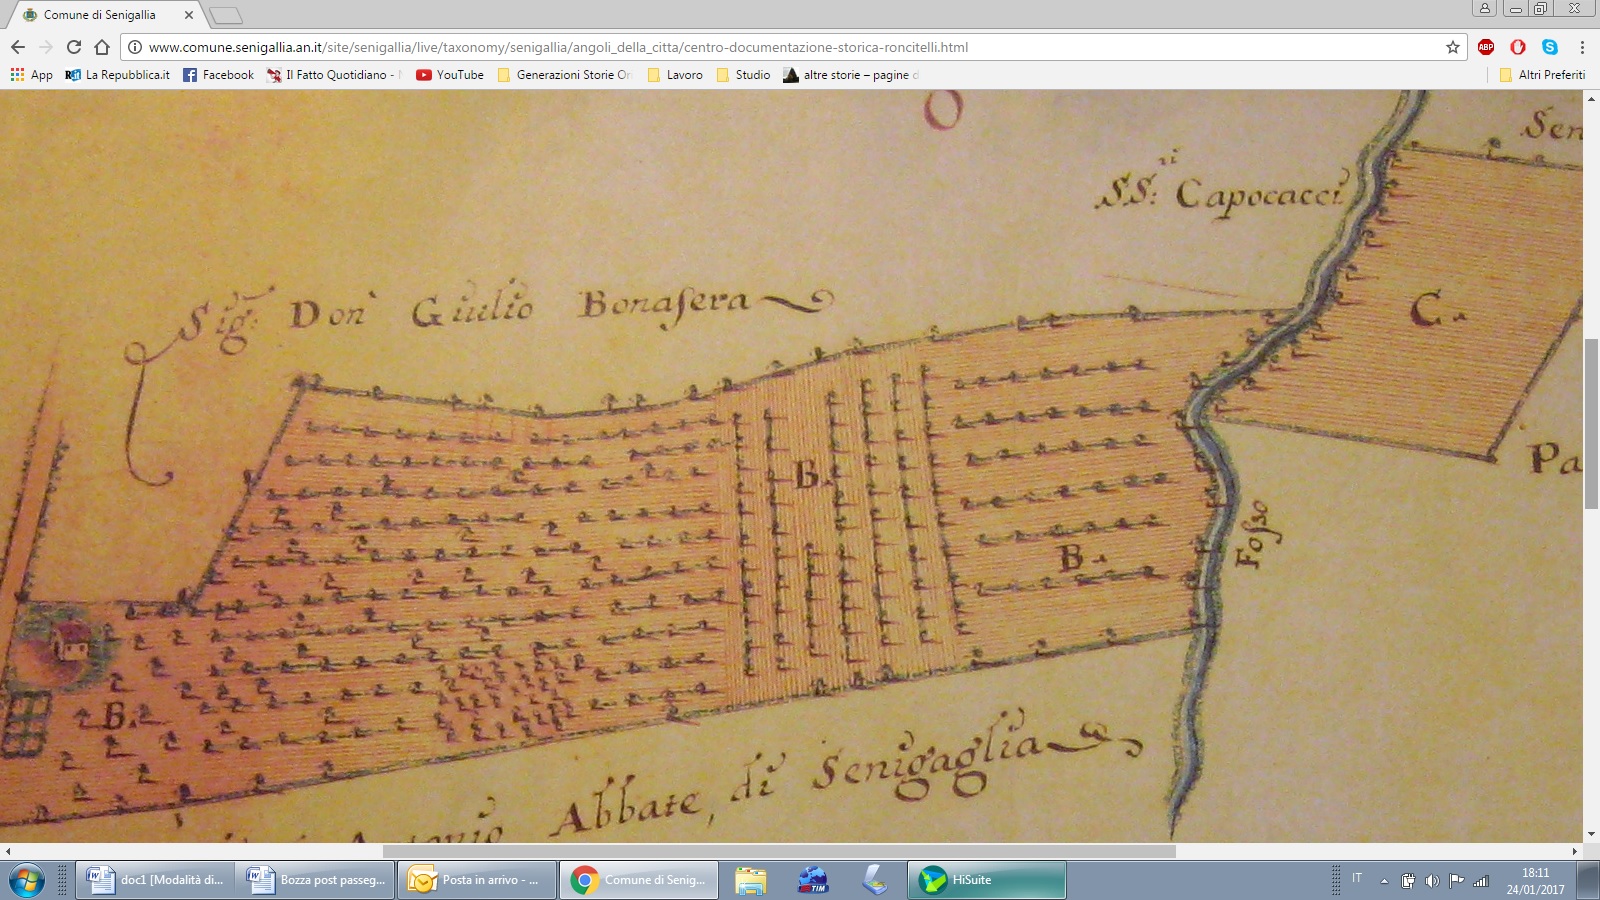 Comune di Senigallia
www.comune.senigallia.an.it/site/senigallia/live/taxonomy/senigallia/angoli_della_citta/centro-documentazione-storica-roncitelli.html
ABP
App
La Repubblica.it
Facebook
Il Fatto Quotidiano -
YouTube
Generazioni Storie Or
Lavoro
Studio
altre storie – pagine d
Altri Preferiti
O
Sen
SS:ri Capocacci
Sig: Don Giulio Bonasera
C.
B.
Pa
Fosso
B.
B.
Antonio Abbate, di Senigaglia
doc1 [Modalità di...
Bozza post passeg...
Posta in arrivo - ...
Comune di Senig...
TIM
HiSuite
IT
18:11
24/01/2017